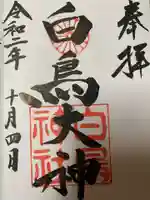 奉拝
白鳥大神
白鳥神社
令和二年
十月四日